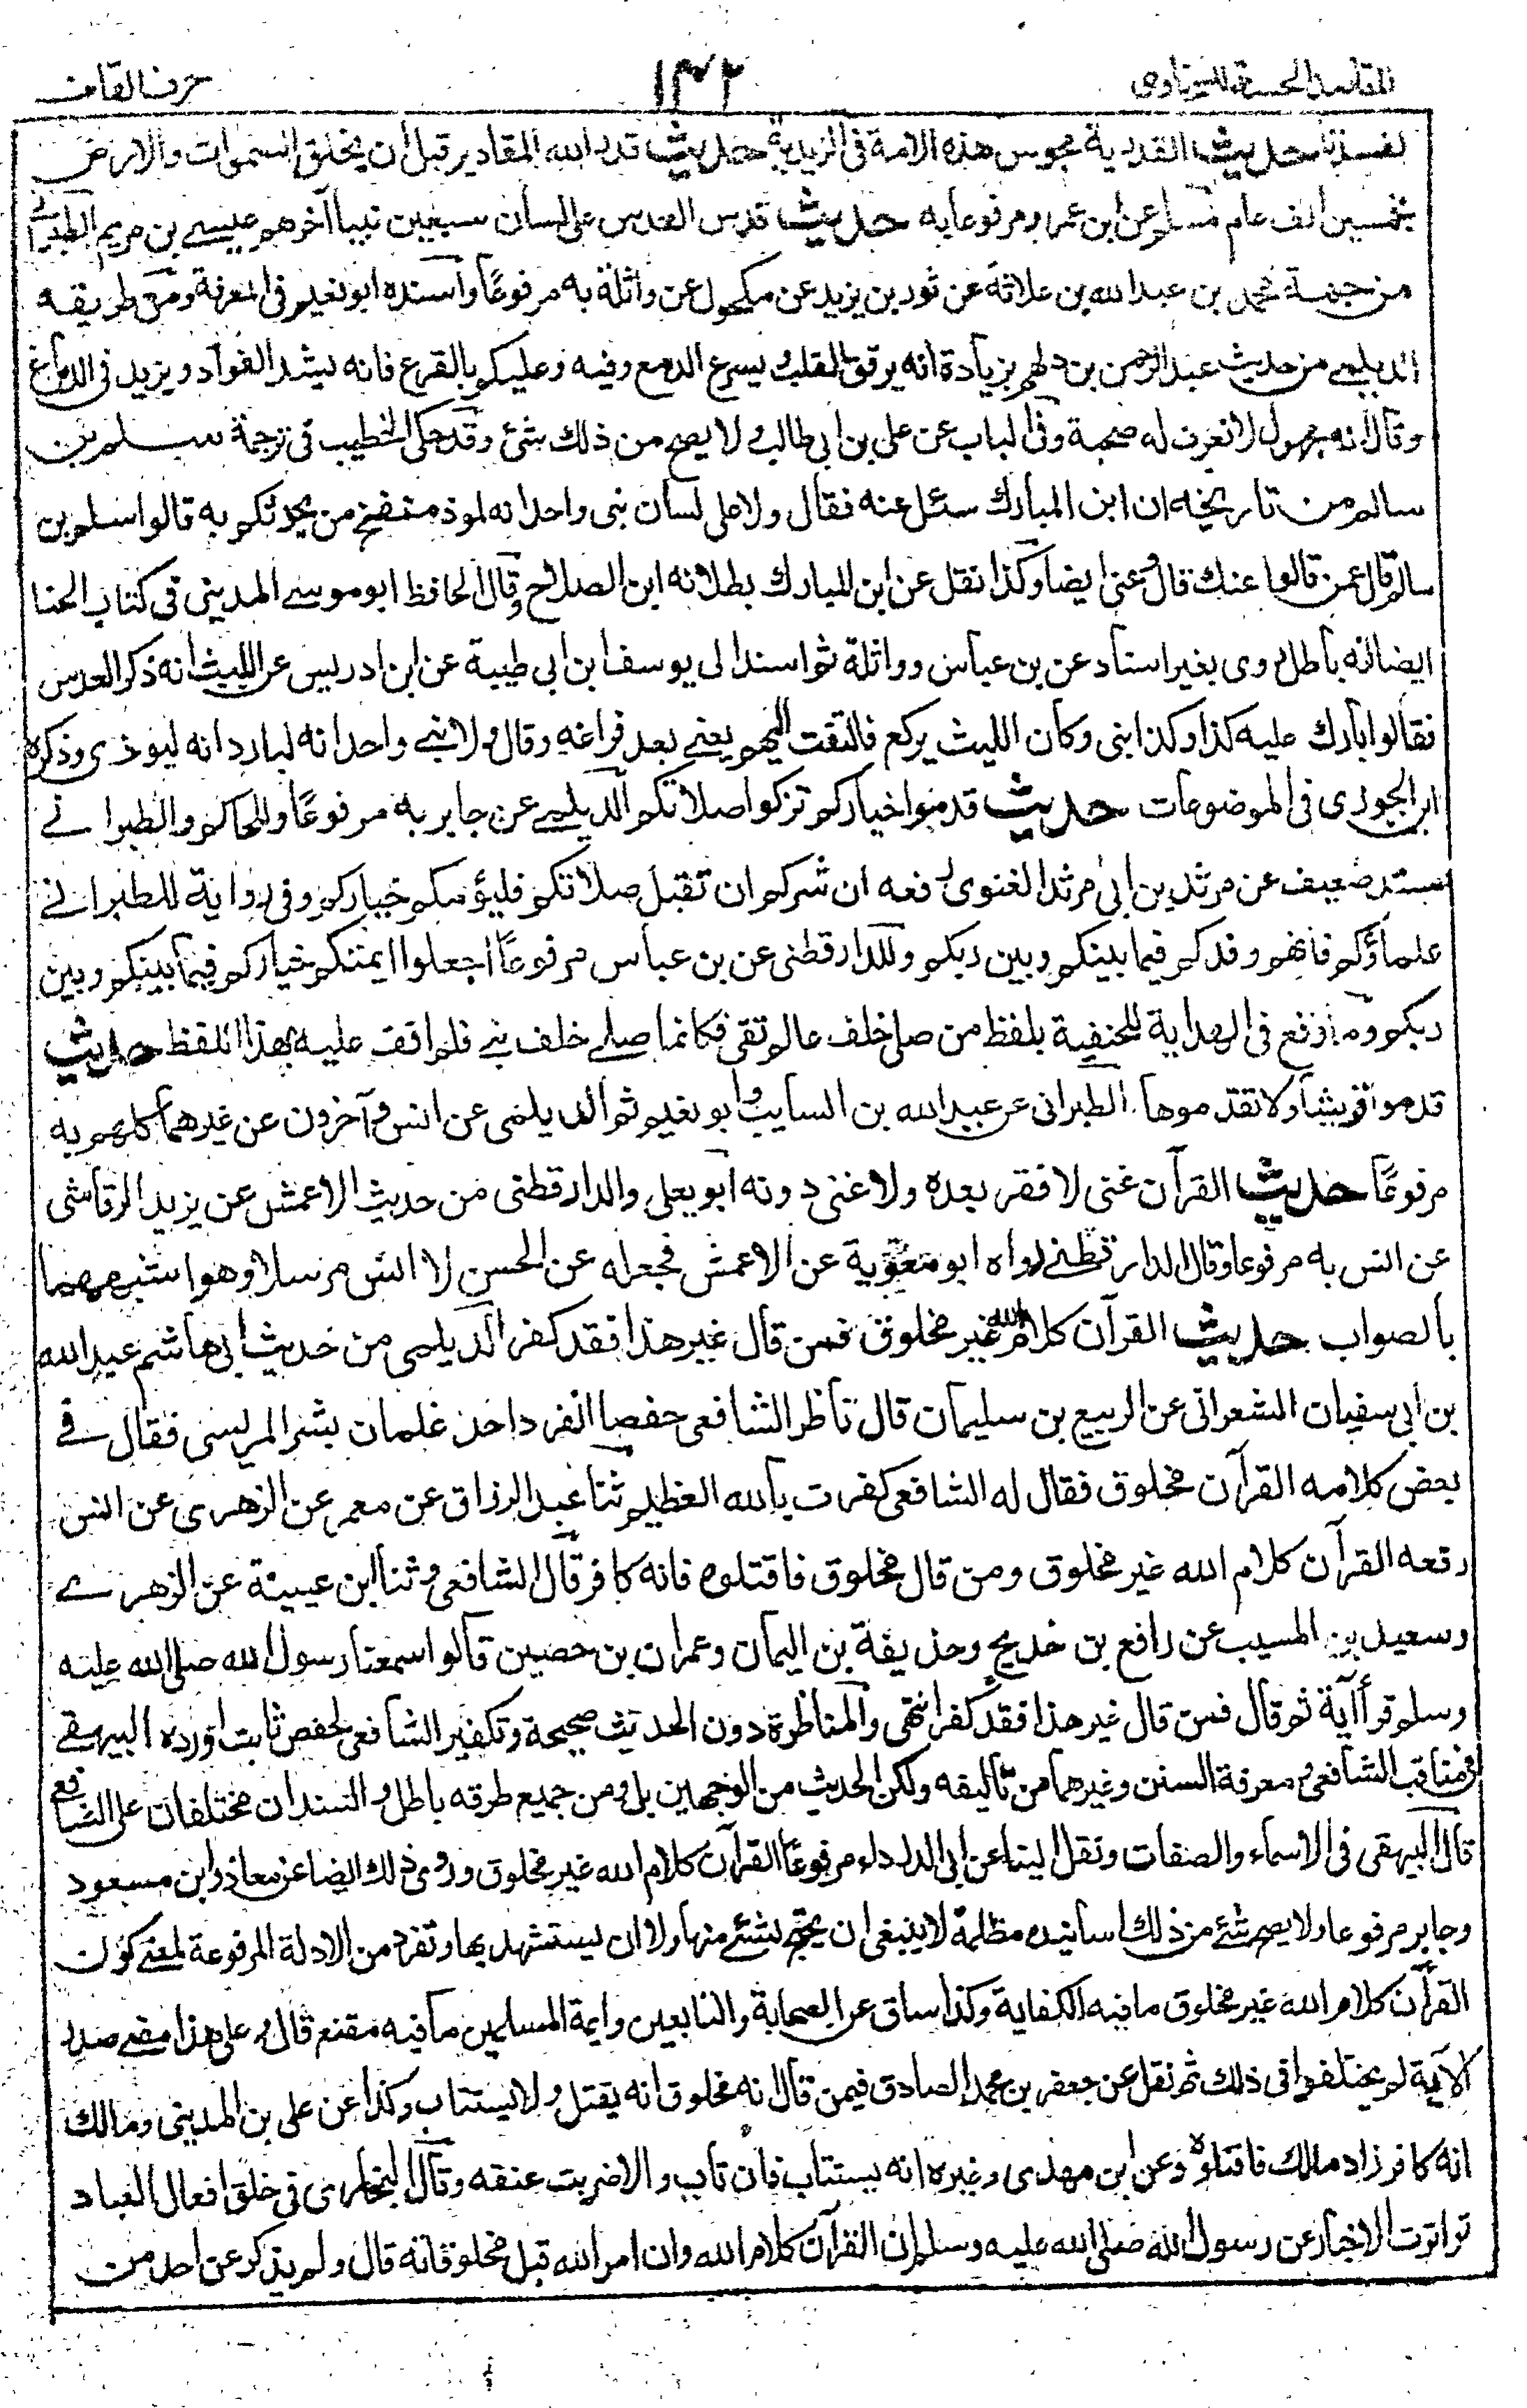 المقاصد الحسنة للسخاوى ١٤٢ حرف القاف
لفسدتا حديث القدرية مجوس هذه الامة فى الزيدية حديث قدر الله المقادير قبل أن يخلق السموات والارض
بخمسين الف عام مسلم عن ابن عمرو مرفوعا به حديث قدس العدس على لسان سبعين نبيا آخرهم عيسى بن مريم الطبرانى
من جهة محمد بن عبد الله بن علاثة عن ثور بن يزيد عن مكحول عن واثلة به مرفوعًا وأسنده ابو نعيم فى المعرفة ومن طريقه
الديلمى من حديث عبد الرحمن بن دلهم بزيادة انه يرقق القلب ويسرع الدمع وفيه وعليكم بالقرع فانه يشد الفواد ويزيد فى الدماغ
وقال انه مجهول لا نعرف له صحبة وفى الباب عن على بن ابى طالب ولا يصح من ذلك شئ وقد حكى الخطيب فى ترجمة سلم بن
سالم من تاريخه ان ابن المبارك سئل عنه فقال ولا على لسان نبى واحد انه لموذ منفخ من يحدثكم به قالوا سلم بن
سالم قال عمن قالوا عنك قال وعنى ايضا وكذا نقل عن ابن المبارك بطلانه ابن الصلاح وقال الحافظ ابو موسى المدينى فى كتاب الحنا
ايضا انه باطل روى بغير اسناد عن بن عباس وواثلة ثم اسند الى يوسف ابن ابى طيبة عن ابن ادريس عن الليث انه ذكر العدس
فقالوا بارك عليه كذا وكذا نبى وكان الليث يركع فالتفت اليهم يعنى بعد فراغه وقال ولا نبى واحد انه لبارد انه ليوذى وذكره
ابن الجوزى فى الموضوعات حديث قدموا خياركم تزكوا صلاتكم الديلمى عن جابر به مرفوعًا وللحاكم والطبرانى
بسند ضعيف عن مرثد بن ابى مرثد الغنوى رفعه ان سركم ان تقبل صلاتكم فليؤمكم خياركم وفى رواية للطبرانى
علماؤكم فانهم وفدكم فيما بينكم وبين ربكم وللدارقطنى عن بن عباس مرفوعًا اجعلوا ايمتكم خياركم فيما بينكم وبين
ربكم وما وقع فى الهداية للحنفية بلفظ من صلى خلف عالم تقى فكانما صلى خلف نبى فلم اقف عليه بهذا اللفظ حديث
قدموا قريشا ولا تقدموها الطبرانى عن عبيد الله بن السايب وابو نعيم ثم الديلمى عن انس وآخرون عن غيرهما كلهم به
مرفوعًا حديث القرآن غنى لا فقر بعده ولا غنى دونه ابو يعلى والدارقطنى من حديث الاعمش عن يزيد الرقاشى
عن انس به مرفوعا وقال الدارقطنى رواه ابو معوية عن الاعمش فجعله عن الحسن لا انس مرسلا وهو اشبههما
بالصواب حديث القرآن كلام الله غير مخلوق فمن قال غير هذا فقد كفر الديلمى من حديث ابى هاشم عبد الله
بن ابى سفيان الشعرانى عن الربيع بن سليمان قال ناظر الشافعى حفصا الفرد احد غلمان بشر المريسى فقال فى
بعض كلامه القرآن مخلوق فقال له الشافعى كفرت بالله العظيم ثنا عبد الرزاق عن معمر عن الزهرى عن انس
رفعه القرآن كلام الله غير مخلوق ومن قال مخلوق فاقتلوه فانه كافر قال الشافعى وثنا ابن عيينة عن الزهرى
وسعيد بن المسيب عن رافع بن خديج وحذيفة بن اليمان وعمران بن حصين قالوا سمعنا رسول الله صلى الله عليه
وسلم قرأ آية ثم قال فمن قال غير هذا فقد كفر انتهى والمناظرة دون الحديث صحيحة وتكفير الشافعى لحفص ثابت اورده البيهقى
فى مناقب الشافعى ومعرفة السنن وغيرهما من تآليفه ولكن الحديث من الوجهين بل ومن جميع طرقه باطل والسندان مختلفان على الشافعى
قال البيهقى فى الاسماء والصفات ونقل الينا عن ابى الدرداء مرفوعًا القرآن كلام الله غير مخلوق وروى ذلك ايضا عن معاذ وابن مسعود
وجابر مرفوعا ولا يصح شئ من ذلك اسانيده مظلمة لا ينبغى ان يحتج بشئ منها ولا ان يستشهد بها وتفرد من الادلة المرفوعة لمعنى كون
القرآن كلام الله غير مخلوق ما فيه الكفاية وكذا ساق عن الصحابة والتابعين وايمة المسلمين ما فيه مقنع قال وعلى هذا مضى صدر
الامة لم يختلفوا فى ذلك ثم نقل عن جعفر بن محمد الصادق فيمن قال انه مخلوق انه يقتل ولا يستتاب وكذا عن على بن المدينى ومالك
انه كافر زاد مالك فاقتلوه وعن ابن مهدى وغيره انه يستتاب فان تاب والا ضربت عنقه وقال البخارى فى خلق افعال العباد
تواترت الاخبار عن رسول الله صلى الله عليه وسلم ان القرآن كلام الله وان امر الله قبل مخلوقاته قال ولم يذكر عن احد من